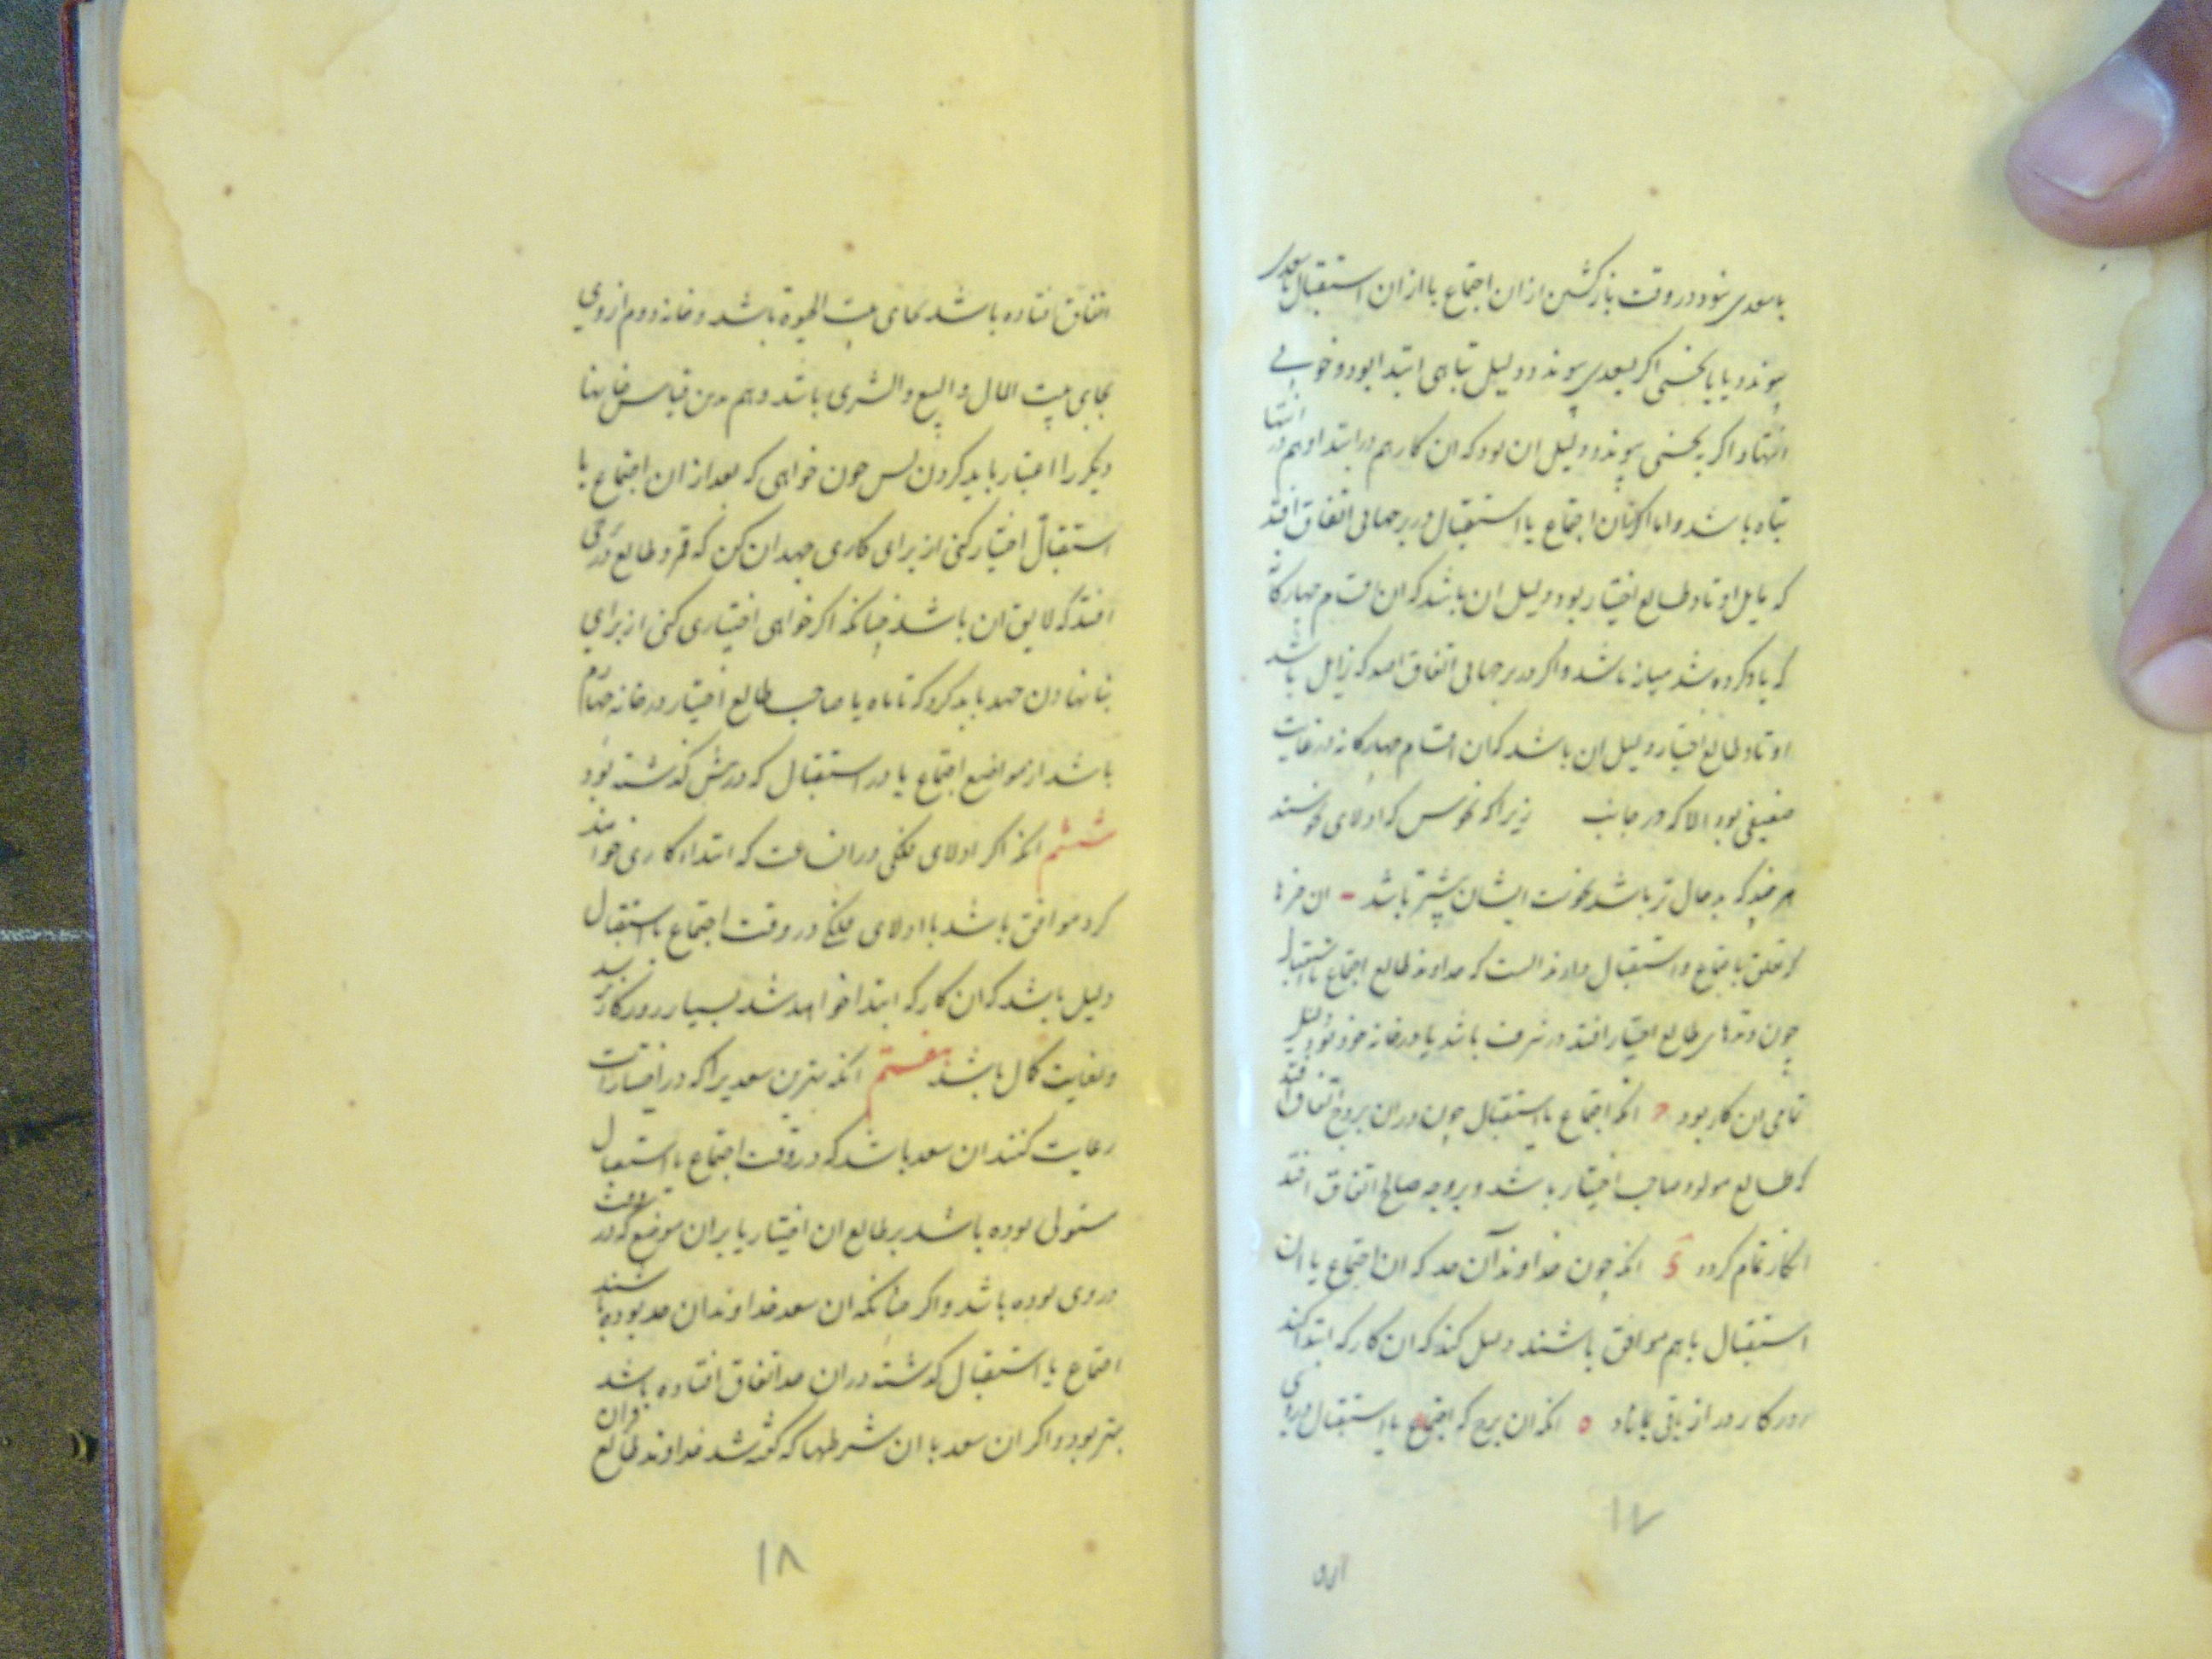 با سعدی شود در وقت بازگشتن از ان اجتماع یا از ان استقبال با سعدی
پیوندد یا با نحسی اکر بسعدی پیوندد دلیل تباهی ابتدا بود و خوبی
انتها و اکر بنحسی پیوندد دلیل ان بود که ان کار هم در ابتدا و هم در انتها
تباه باشد و اما اکر ان اجتماع یا استقبال در برجهائی اتفاق افتد
که مایل اوتاد طالع اختیار بود دلیل ان باشد که ان اقسام چهارکانه
که یاد کرده شد میانه باشد و اکر در برجهائی اتفاق افتد که زایل باشد
اوتاد طالع اختیار دلیل ان باشد که ان اقسام چهارکانه در غایت
ضعیفی بود الا که در جانب زیرا که نحوس که اولای نحوستند
هر چند که بد حال تر باشد نحوست ایشان بیشتر باشد ان جزها
که تعلق باجتماع و استقبال دارند انست که خداوند طالع اجتماع یا استقبال
چون وتدهاء طالع اختیار افتد در شرف باشد یا در خانه خود بود دلیل
تمامی ان کار بود انکه اجتماع یا استقبال چون در ان بروج اتفاق افتد
که طالع مولود صاحب اختیار باشد و بر وجه صالح اتفاق افتد
انکار تمام کردد انکه چون خداوند آن حد که ان اجتماع یا ان
استقبال با هم موافق باشند دلیل کند که ان کار که ابتدا کنند
روزکار دراز باقی بماند ٥ انکه ان برج که اجتماع یا استقبال در وی
١٧
اتفاق افتاده باشد بجای بیت الحیوة باشد و خانه دوم از وی
بجای بیت المال و البیع و الشری باشد و هم بدین قیاس خانهها
دیکر را اعتبار باید کردن پس چون خواهی که بعد از ان اجتماع یا
استقبال اختیار کنی از برای کاری جهد ان کن که قمر و طالع در برجی
افتد که لایق ان باشد چنانکه اکر خواهی اختیاری کنی از برای
بنا نهادن جهد باید کرد که تا ماه یا صاحب طالع اختیار در خانه چهارم
باشد از مواضع اجتماع یا در استقبال که در پیش کذشته بود
ششم انکه اکر اولای فلکی در ان ساعت که ابتداء کاری خواهند
کرد موافق باشد با اولای فلکی در وقت اجتماع یا استقبال
دلیل باشد که ان کار که ابتدا خواهد شد بسیار روزکار
و بغایت کمال باشد هفتم انکه بهترین سعدیرا که در اختیارات
رعایت کنند ان سعد باشد که در وقت اجتماع یا استقبال
مستولی بوده باشد بر طالع ان اختیار یا بر ان موضع که در وقت
در وی بوده باشد و اکر چنانکه ان سعد خداوند ان حد بوده باشند
اجتماع یا استقبال کذشته در ان حد اتفاق افتاده باشد
بهتر بود و اکر ان سعد با ان شرطها که کفته شد خداوند طالع
١٨